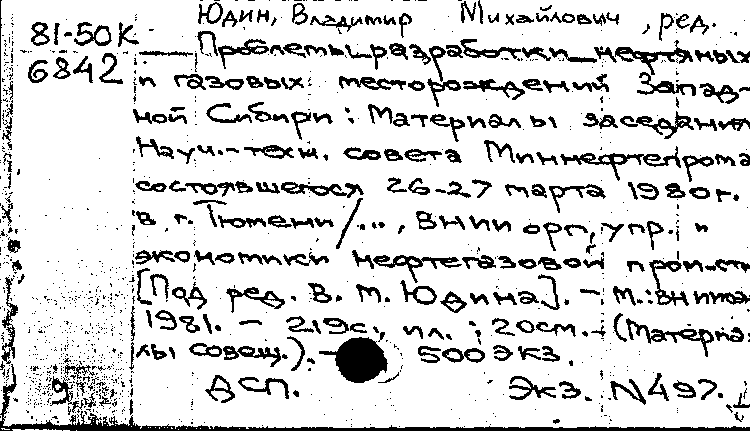 Юдин, Владимир Михайлович, ред.
81-50К
6842
Проблемы разработки нефтяных
и газовых месторождений Запад-
ной Сибири : Материалы заседания
Науч.-техн. совета Миннефтепрома
состоявшегося 26-27 марта 1980г.
в г. Тюмени/..., ВНИИ орг., упр. и
экономики нефтегазовой пром-сти
[Под ред. В. М. Юдина]. - М.:
1981. - 219с., ил. ; 20см. - (Материа-
лы совещ.). - 500 экз.
ДСП. Экз. N497.
9